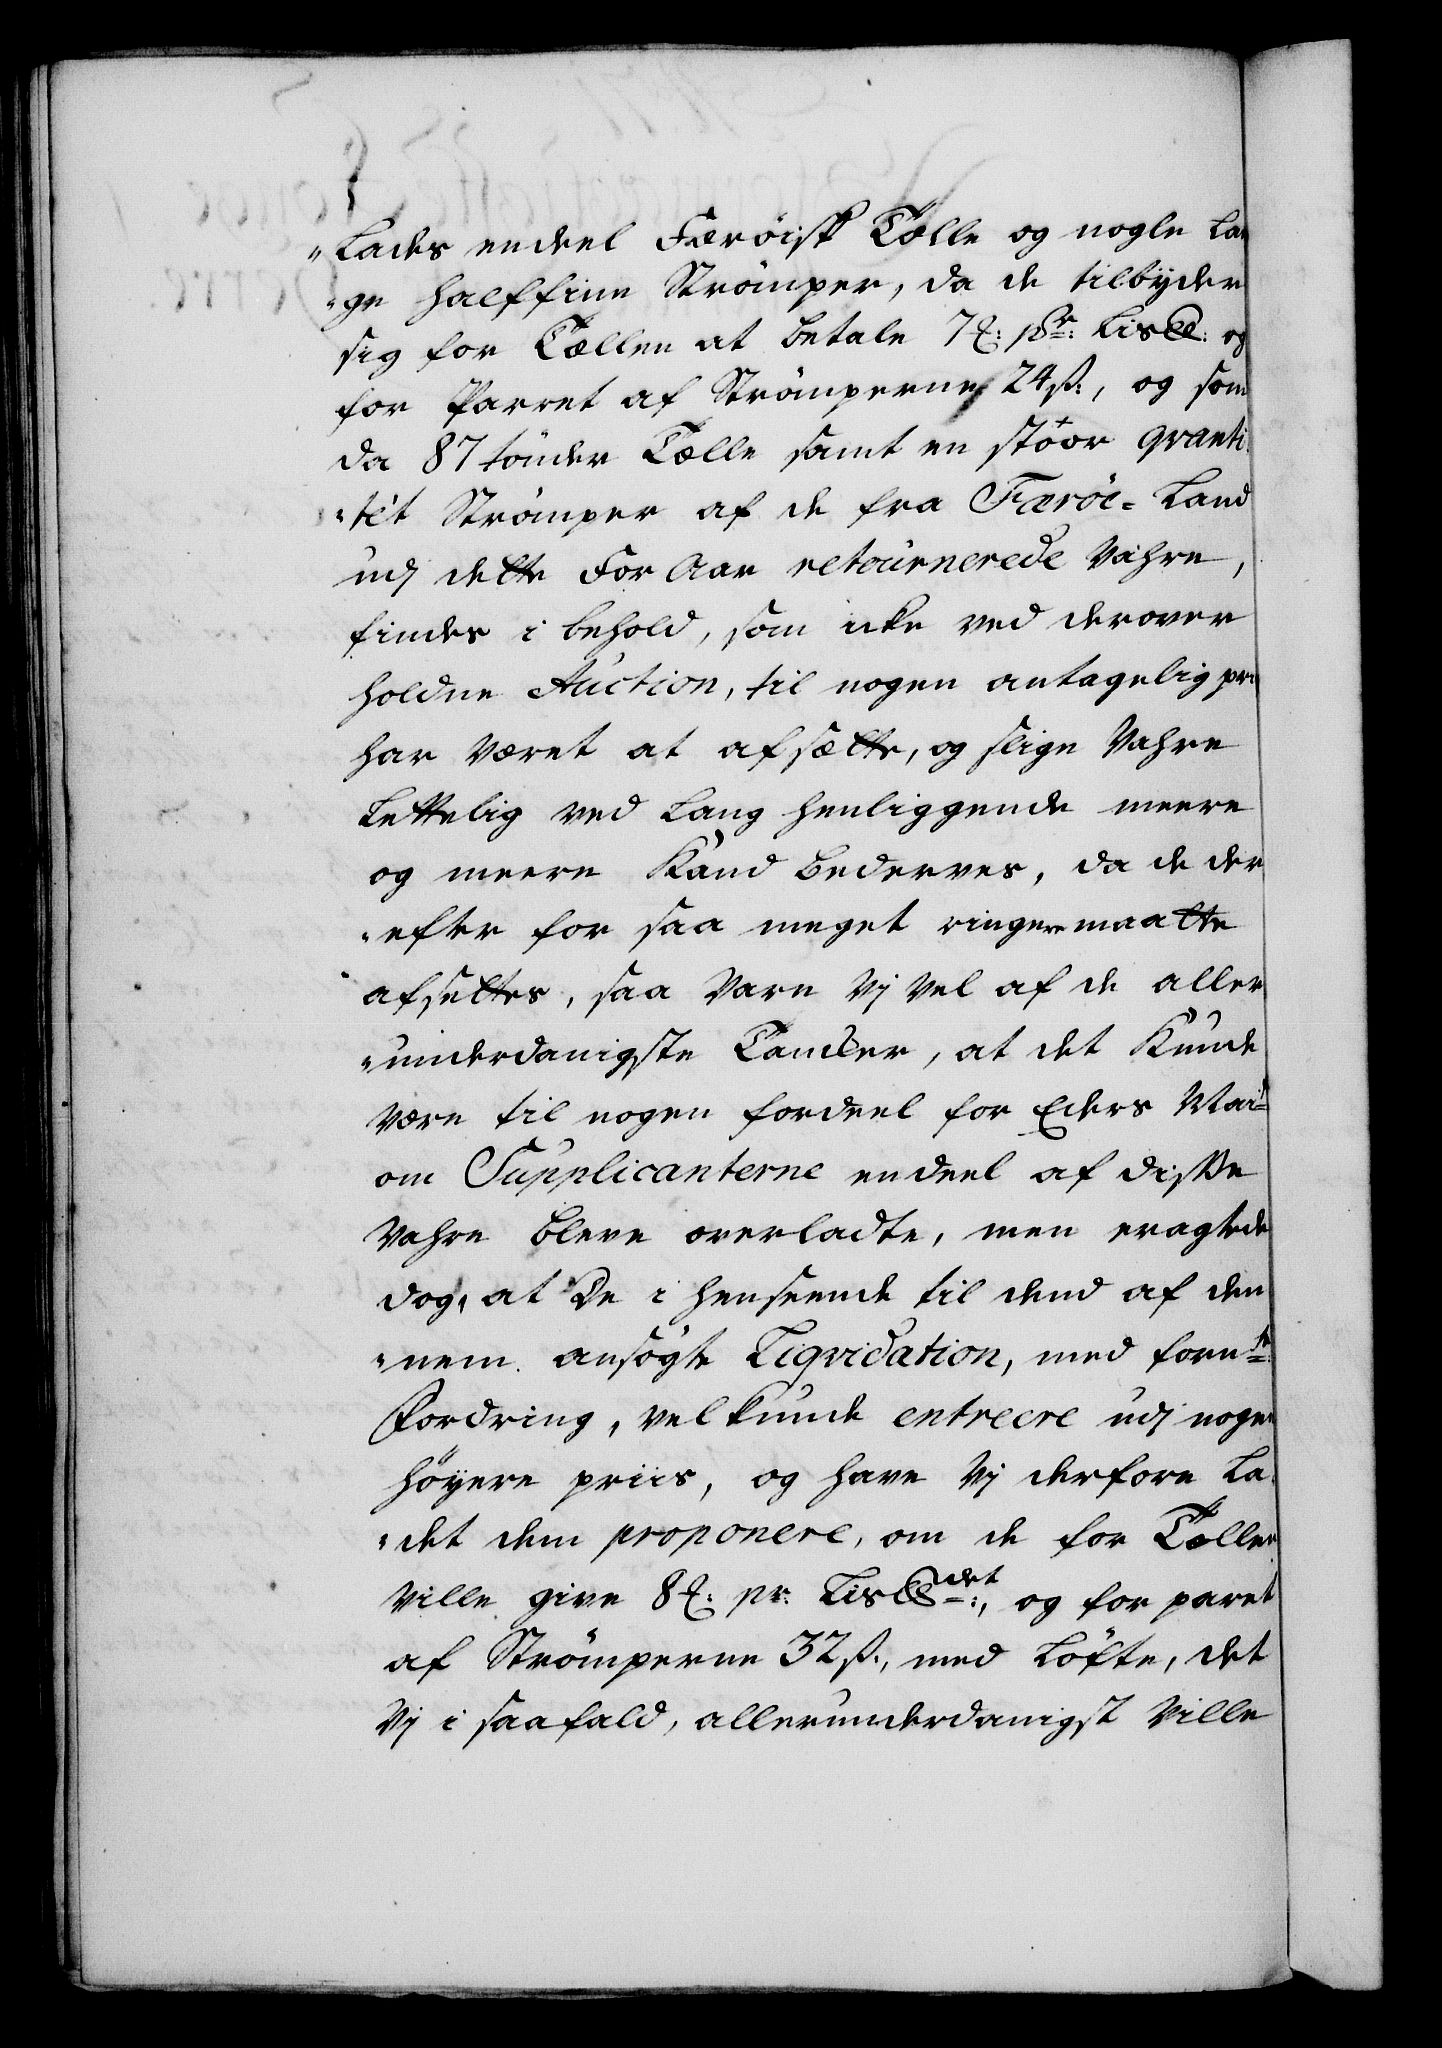 „Lades endeel Færöisk Tælle og nogle lan
„ge halffine Strömper, da de tilbyder
sig for Tællen at betale 7 ₰: pr: Lis℔: og
for Parret af Strömperne 24 ß:, og som
da 87 tönder Tælle samt en stöor qvanti„
„tét Strömper af de fra Færöe=Land
udj dette ForAar retournerede Vahre,
findes i behold, som icke ved derover
holdne Auction, til nogen antagelig pri
har været at afsætte, og slige Vahre
Lettelig ved Lang henliggende meere
og meere Kand bederves, da de der
„efter for saa meget ringere maatte
afsettes, saa Vare Vj Vel af de aller
„underdanigste Tancker, at det Kunde
være til nogen fordeel for Eders Maj:t
om Supplicanterne endeel af disse
Vahre bleve overladte, men eragtede
dog, at De i henseende til dend af den
„nem ansögte Liqvidation, med forn:te
Fordring, vel kunde entreere udj nogen
höyere priis, og have Vj derfore La„
„det dem proponere, om de for Tællen
Ville give 8 ₰: pr: Lis℔det:, og for paret
af Strömperne 32 ß:, med Löfte, det
Vj i saafald, allerunderdanigst Ville